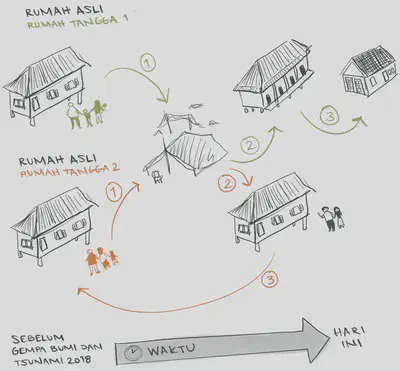 RUMAH ASLI
RUMAH TANGGA 1
1
2
3
RUMAH ASLI
RUMAH TANGGA 2
1
2
3
SEBELUM
GEMPA BUMI DAN
TSUNAMI 2018
WAKTU
HARI
INI